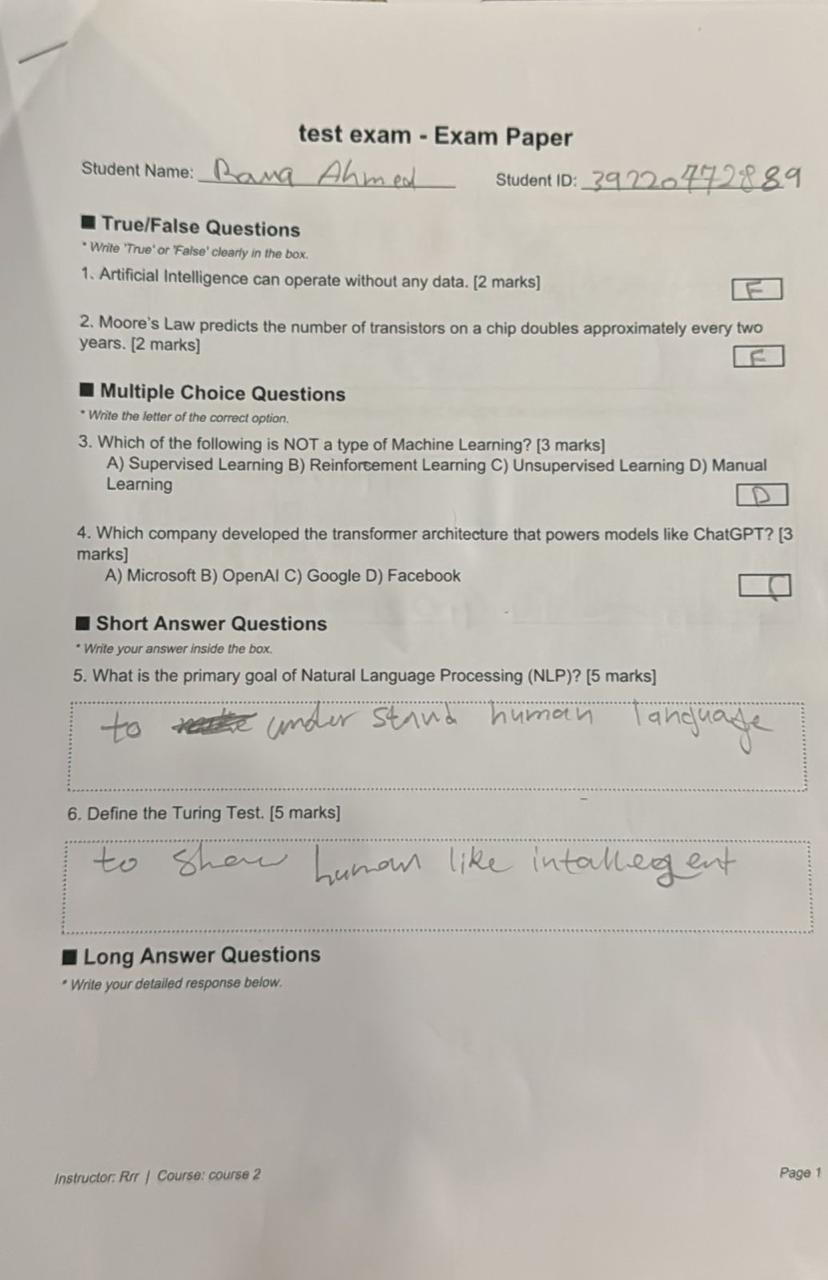 test exam - Exam Paper
Student Name: Rana Ahmed Student ID: 39220472889
■ True/False Questions
* Write 'True' or 'False' clearly in the box.
1. Artificial Intelligence can operate without any data. [2 marks]
F
2. Moore's Law predicts the number of transistors on a chip doubles approximately every two
years. [2 marks]
F
■ Multiple Choice Questions
* Write the letter of the correct option.
3. Which of the following is NOT a type of Machine Learning? [3 marks]
A) Supervised Learning B) Reinforcement Learning C) Unsupervised Learning D) Manual
Learning
D
4. Which company developed the transformer architecture that powers models like ChatGPT? [3
marks]
A) Microsoft B) OpenAI C) Google D) Facebook
C
■ Short Answer Questions
* Write your answer inside the box.
5. What is the primary goal of Natural Language Processing (NLP)? [5 marks]
to under stand human language
6. Define the Turing Test. [5 marks]
to show human like intallegent
■ Long Answer Questions
* Write your detailed response below.
Instructor: Rrr | Course: course 2 Page 1